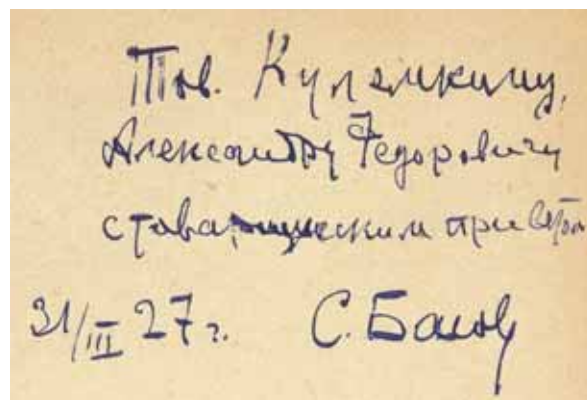 Тов. Кулемкину,
Александру Федоровичу
с товарищеским приветом
31/III 27 г. С. Басов